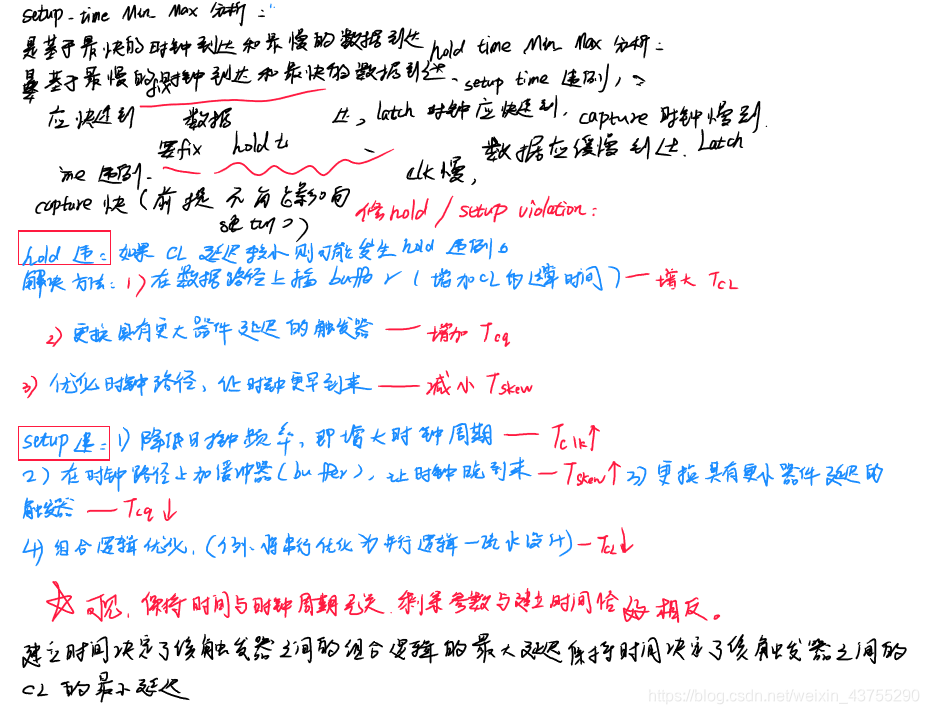 setup-time Min Max 分析:
是基于最快的时钟到达和最慢的数据到达 hold time Min Max 分析:
是基于最慢的时钟到达和最快的数据到达、setup time 违例,
应快速到 数据 达, latch 时钟应快速到, capture 时钟慢到.
要fix hold ti 数据应缓慢到达. Latch
me 违例. clk慢,
capture 快(前提 不能影响
setup)
修hold / setup violation:
hold 违: 如果 CL 延迟较小则可能发生 hold 违例。
解决方法: 1) 在数据路径上插 buffer (增加CL的运算时间) — 增大 TCL
2) 更换具有更大器件延迟的触发器 — 增加 Tcq
3) 优化时钟路径, 让时钟更早到来 — 减小 Tskew
setup违: 1) 降低时钟频率, 即增大时钟周期 — Tclk↑
2) 在时钟路径上加缓冲器(buffer), 让时钟晚到来 — Tskew↑ 3) 更换具有更小器件延迟的
触发器 — Tcq↓
4) 组合逻辑优化, (例. 将串行优化为并行逻辑—流水设计) — TCL↓
☆ 可见, 保持时间与时钟周期无关. 剩余参数与建立时间恰好相反。
建立时间决定了该触发器之间的组合逻辑的最大延迟 保持时间决定了该触发器之间的
CL 的最小延迟
https://blog.csdn.net/weixin_43755290